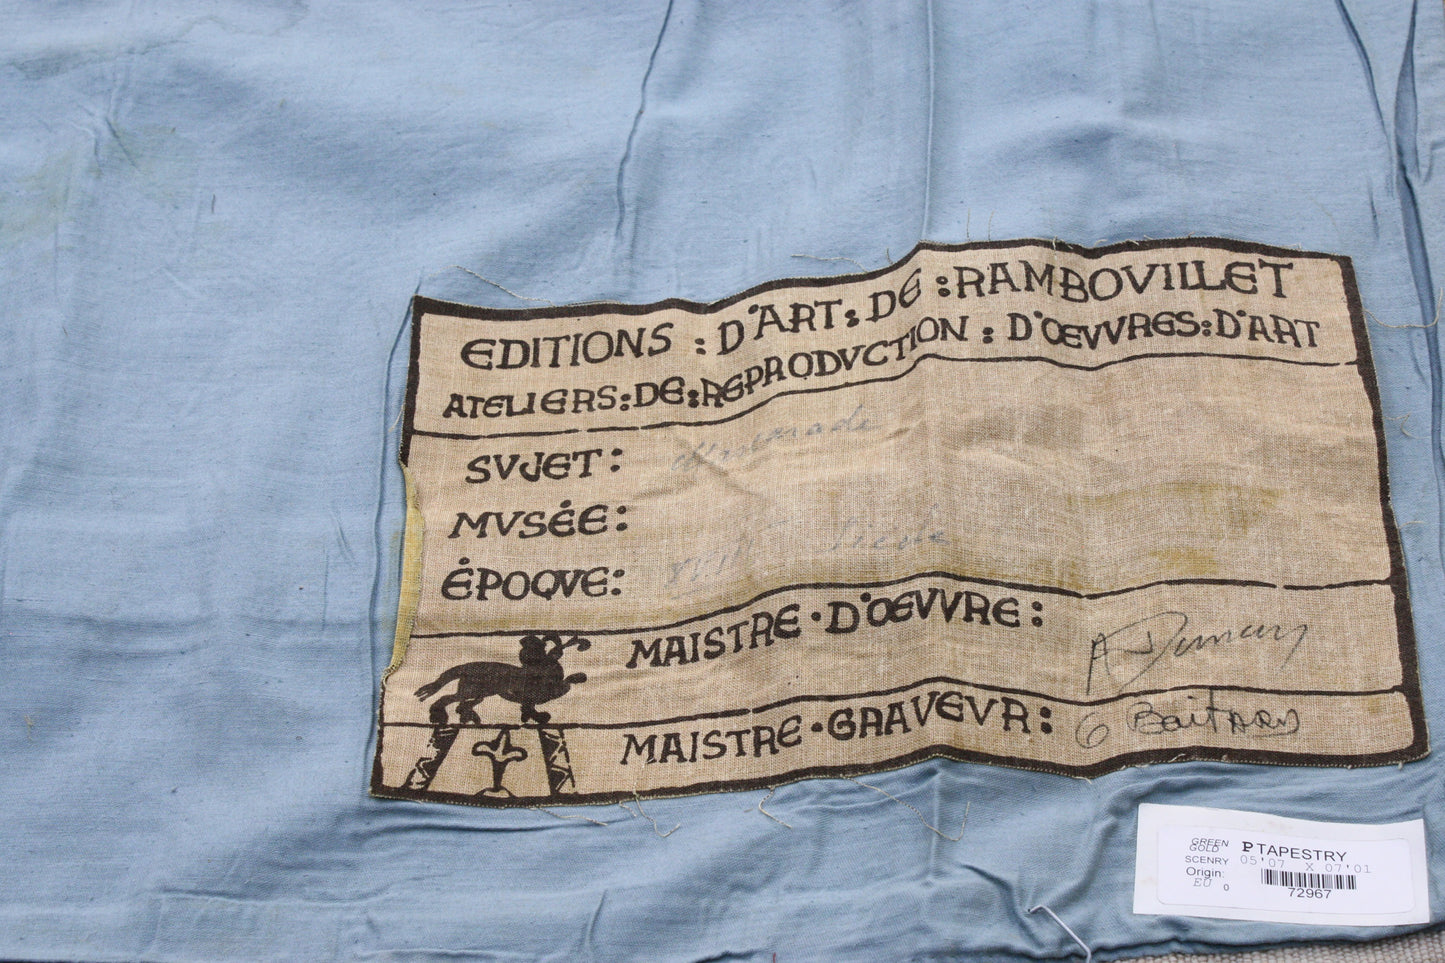 EDITIONS : D'ART : DE : RAMBOVILLET
ATELIERS : DE : REPRODVCTION : D'ŒVVRES : D'ART
SVJET :
MVSÉE :
ÉPOQVE : XVIIIe Siècle
MAISTRE · D'ŒVVRE :
MAISTRE · GRAVEVR :
GREEN
GOLD
PTAPESTRY
SCENRY 05'07 X 07'01
Origin:
EU 0
72967